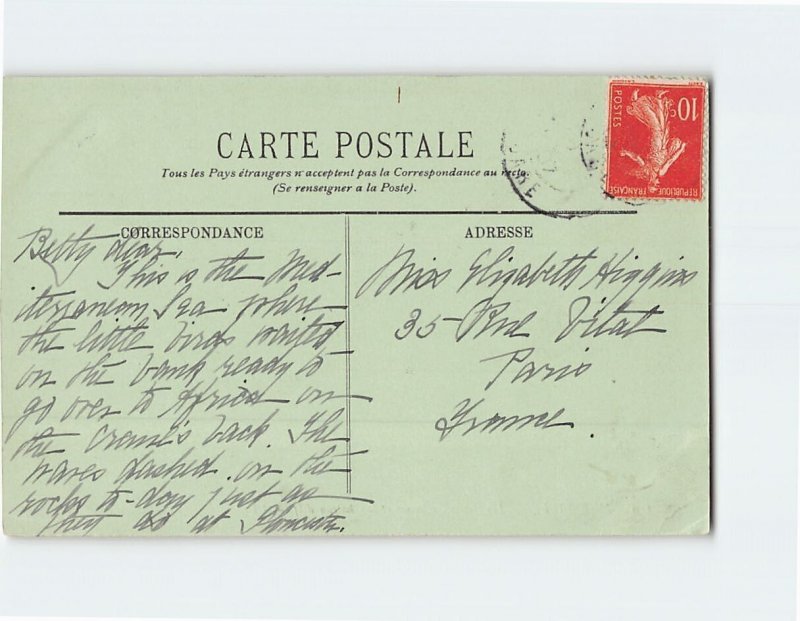 CARTE POSTALE
Tous les Pays étrangers n'acceptent pas la Correspondance au recto.
(Se renseigner a la Poste).
CORRESPONDANCE
Betty dear,
This is the Med-
iterranean Sea where
the little birds waited
on the bank ready to
go over to Africa on
the Crane's back. The
waves dashed on the
rocks to-day just as
they do at Gloucester.
ADRESSE
Miss Elizabeth Higgins
35 Rue Vital
Paris
France.
10c
POSTES
REPUBLIQUE FRANÇAISE